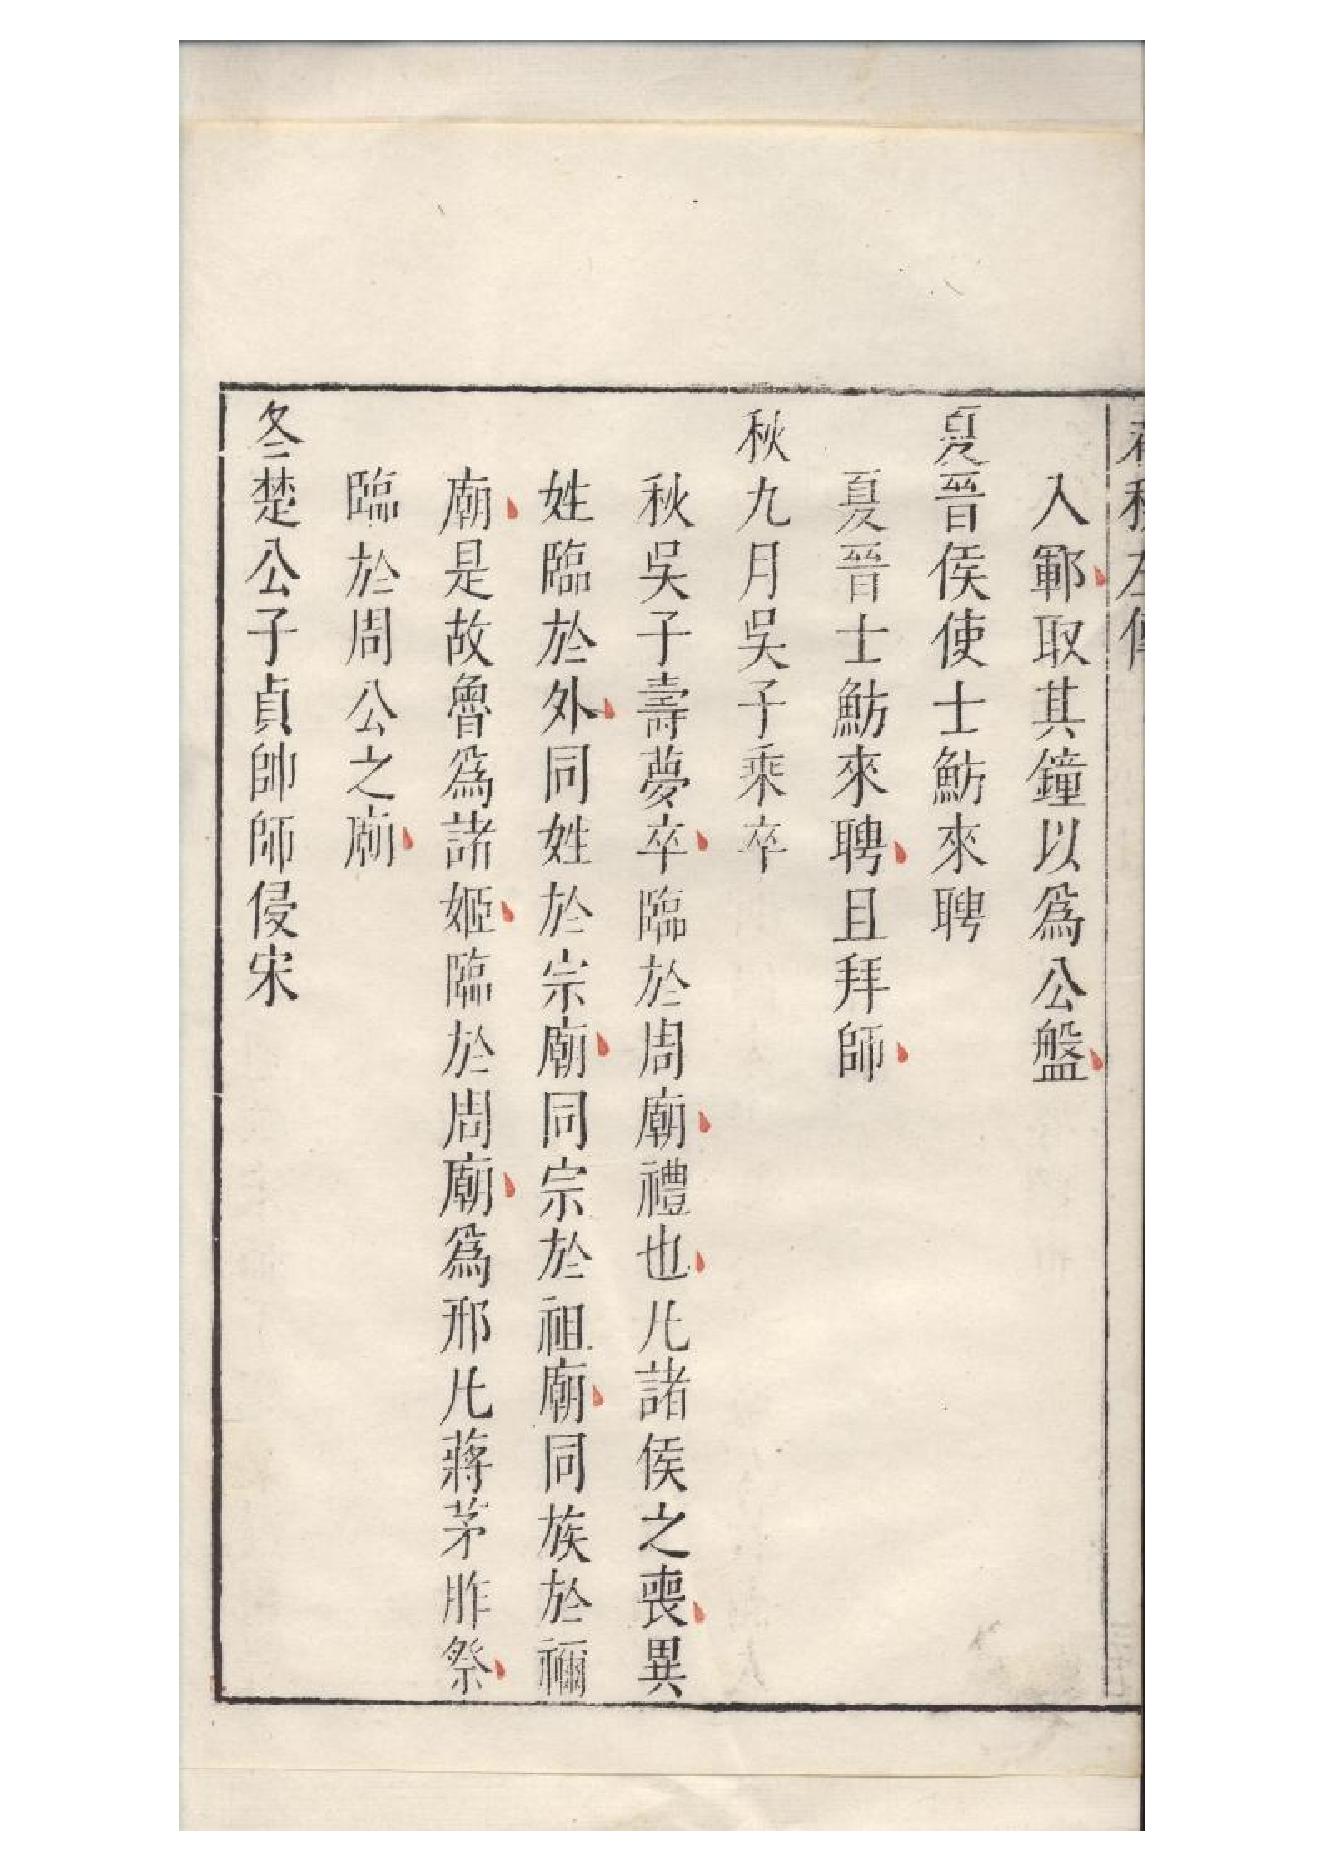 春秋左傳
入鄆取其鐘以爲公盤
夏晉侯使士魴來聘
夏晉士魴來聘且拜師
秋九月吳子乘卒
秋吳子壽夢卒臨於周廟禮也凡諸侯之喪異
姓臨於外同姓於宗廟同宗於祖廟同族於禰
廟是故魯爲諸姬臨於周廟爲邢凡蔣茅胙祭
臨於周公之廟
冬楚公子貞帥師侵宋